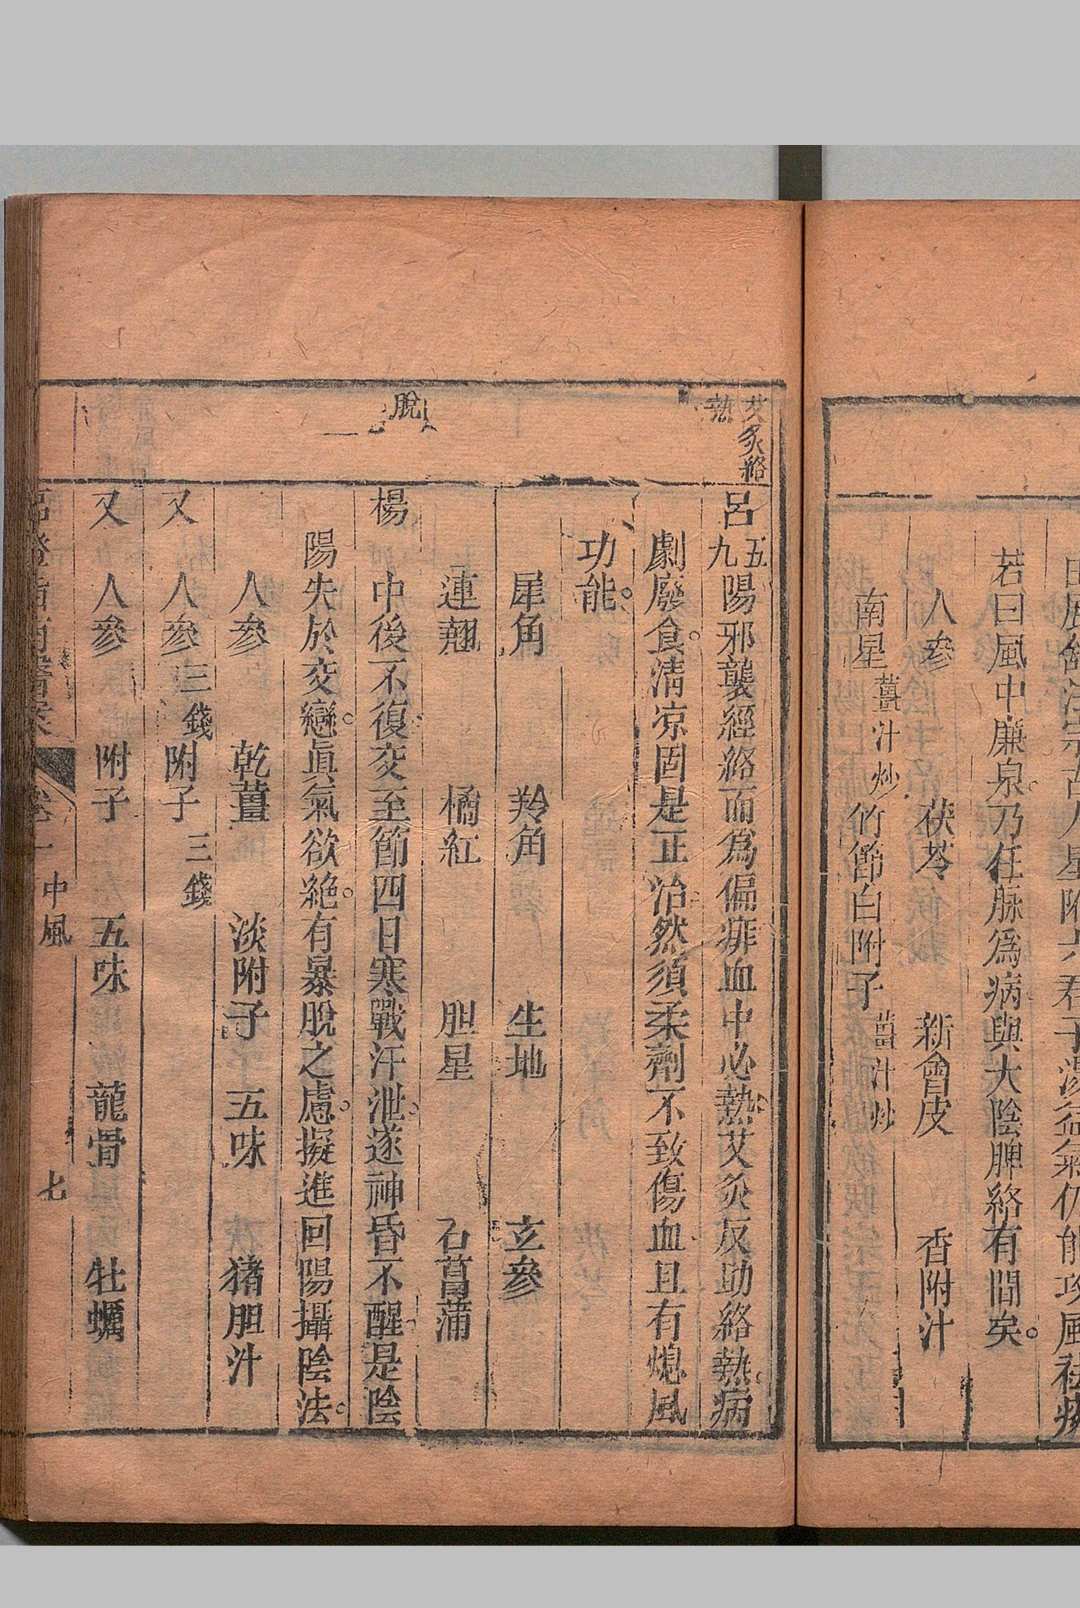 若曰風中廉泉乃任脉爲病與大陰脾絡有間矣
人參　茯苓　新會皮　香附汁
南星薑汁炒　竹節白附子薑汁炒
艾灸絡
熱
呂五九陽邪襲經絡而爲偏痱血中必熱艾灸反助絡熱病
劇廢食清凉固是正治然須柔劑不致傷血且有熄風
功能
犀角　羚角　生地　玄參
連翹　橘紅　胆星　石菖蒲
脫
楊　中後不復交至節四日寒戰汗泄遂神昏不醒是陰
陽失於交戀眞氣欲絕有暴脫之慮擬進回陽攝陰法
人參　乾薑　淡附子　五味　猪胆汁
又　人參三錢　附子三錢
又　人參　附子　五味　龍骨　牡蠣
中風　七